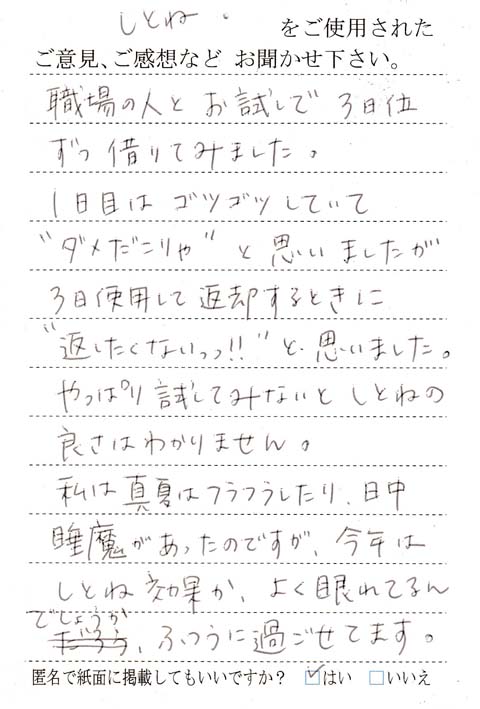 しとね。 をご使用された
ご意見、ご感想など お聞かせ下さい。
職場の人と お試しで 3日位
ずつ 借りてみました。
1日目は ゴツゴツしていて
"ダメだこりゃ" と 思いましたが
3日使用して 返却するときに
"返したくないっっ!!" と 思いました。
やっぱり 試してみないと しとねの
良さはわかりません。
私は 真夏はフラフラしたり、日中
睡魔があったのですが、今年は
しとね効果か、よく眠れてるん
でしょうか
だろう、ふつうに過ごせてます。
匿名で紙面に掲載してもいいですか? ☑はい □いいえ